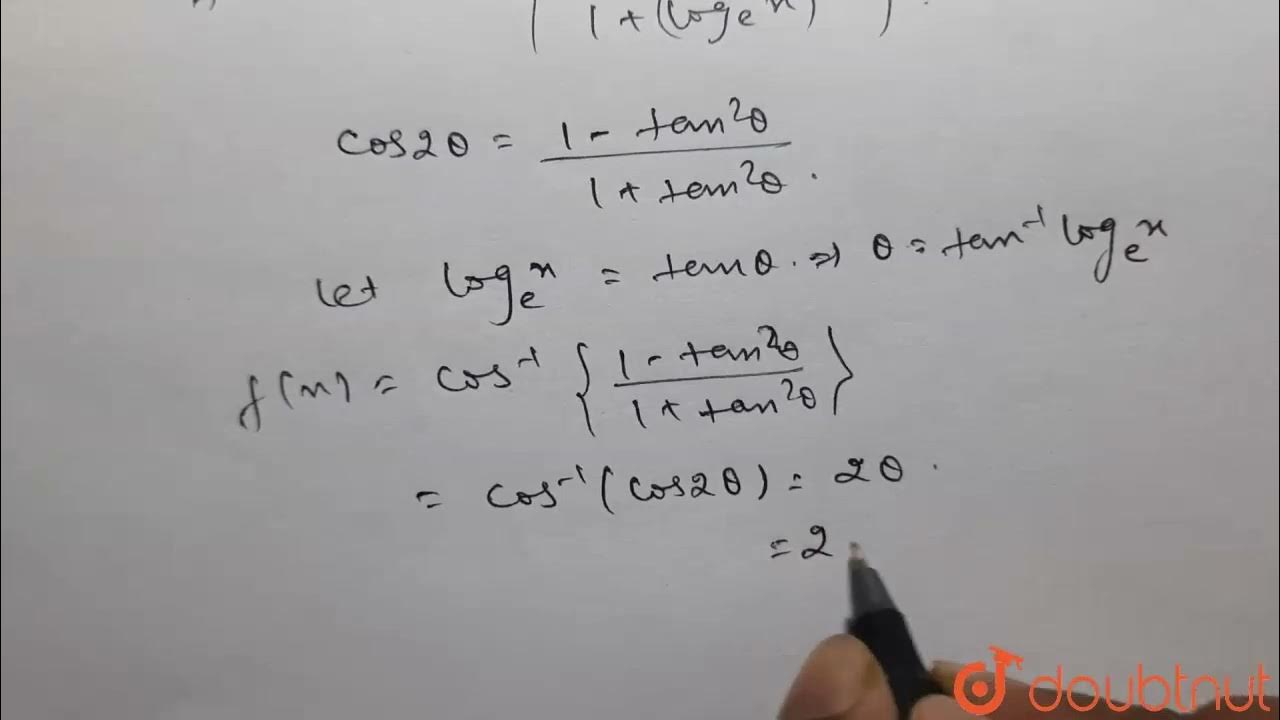 1 + (log e x)
cos2θ = 1 - tan²θ / 1 + tan²θ .
Let log e x = tanθ. ⇒ θ = tan⁻¹ log e x
f(x) = cos⁻¹ { 1 - tan²θ / 1 + tan²θ }
= cos⁻¹ (cos2θ) = 2θ .
= 2
doubtnut